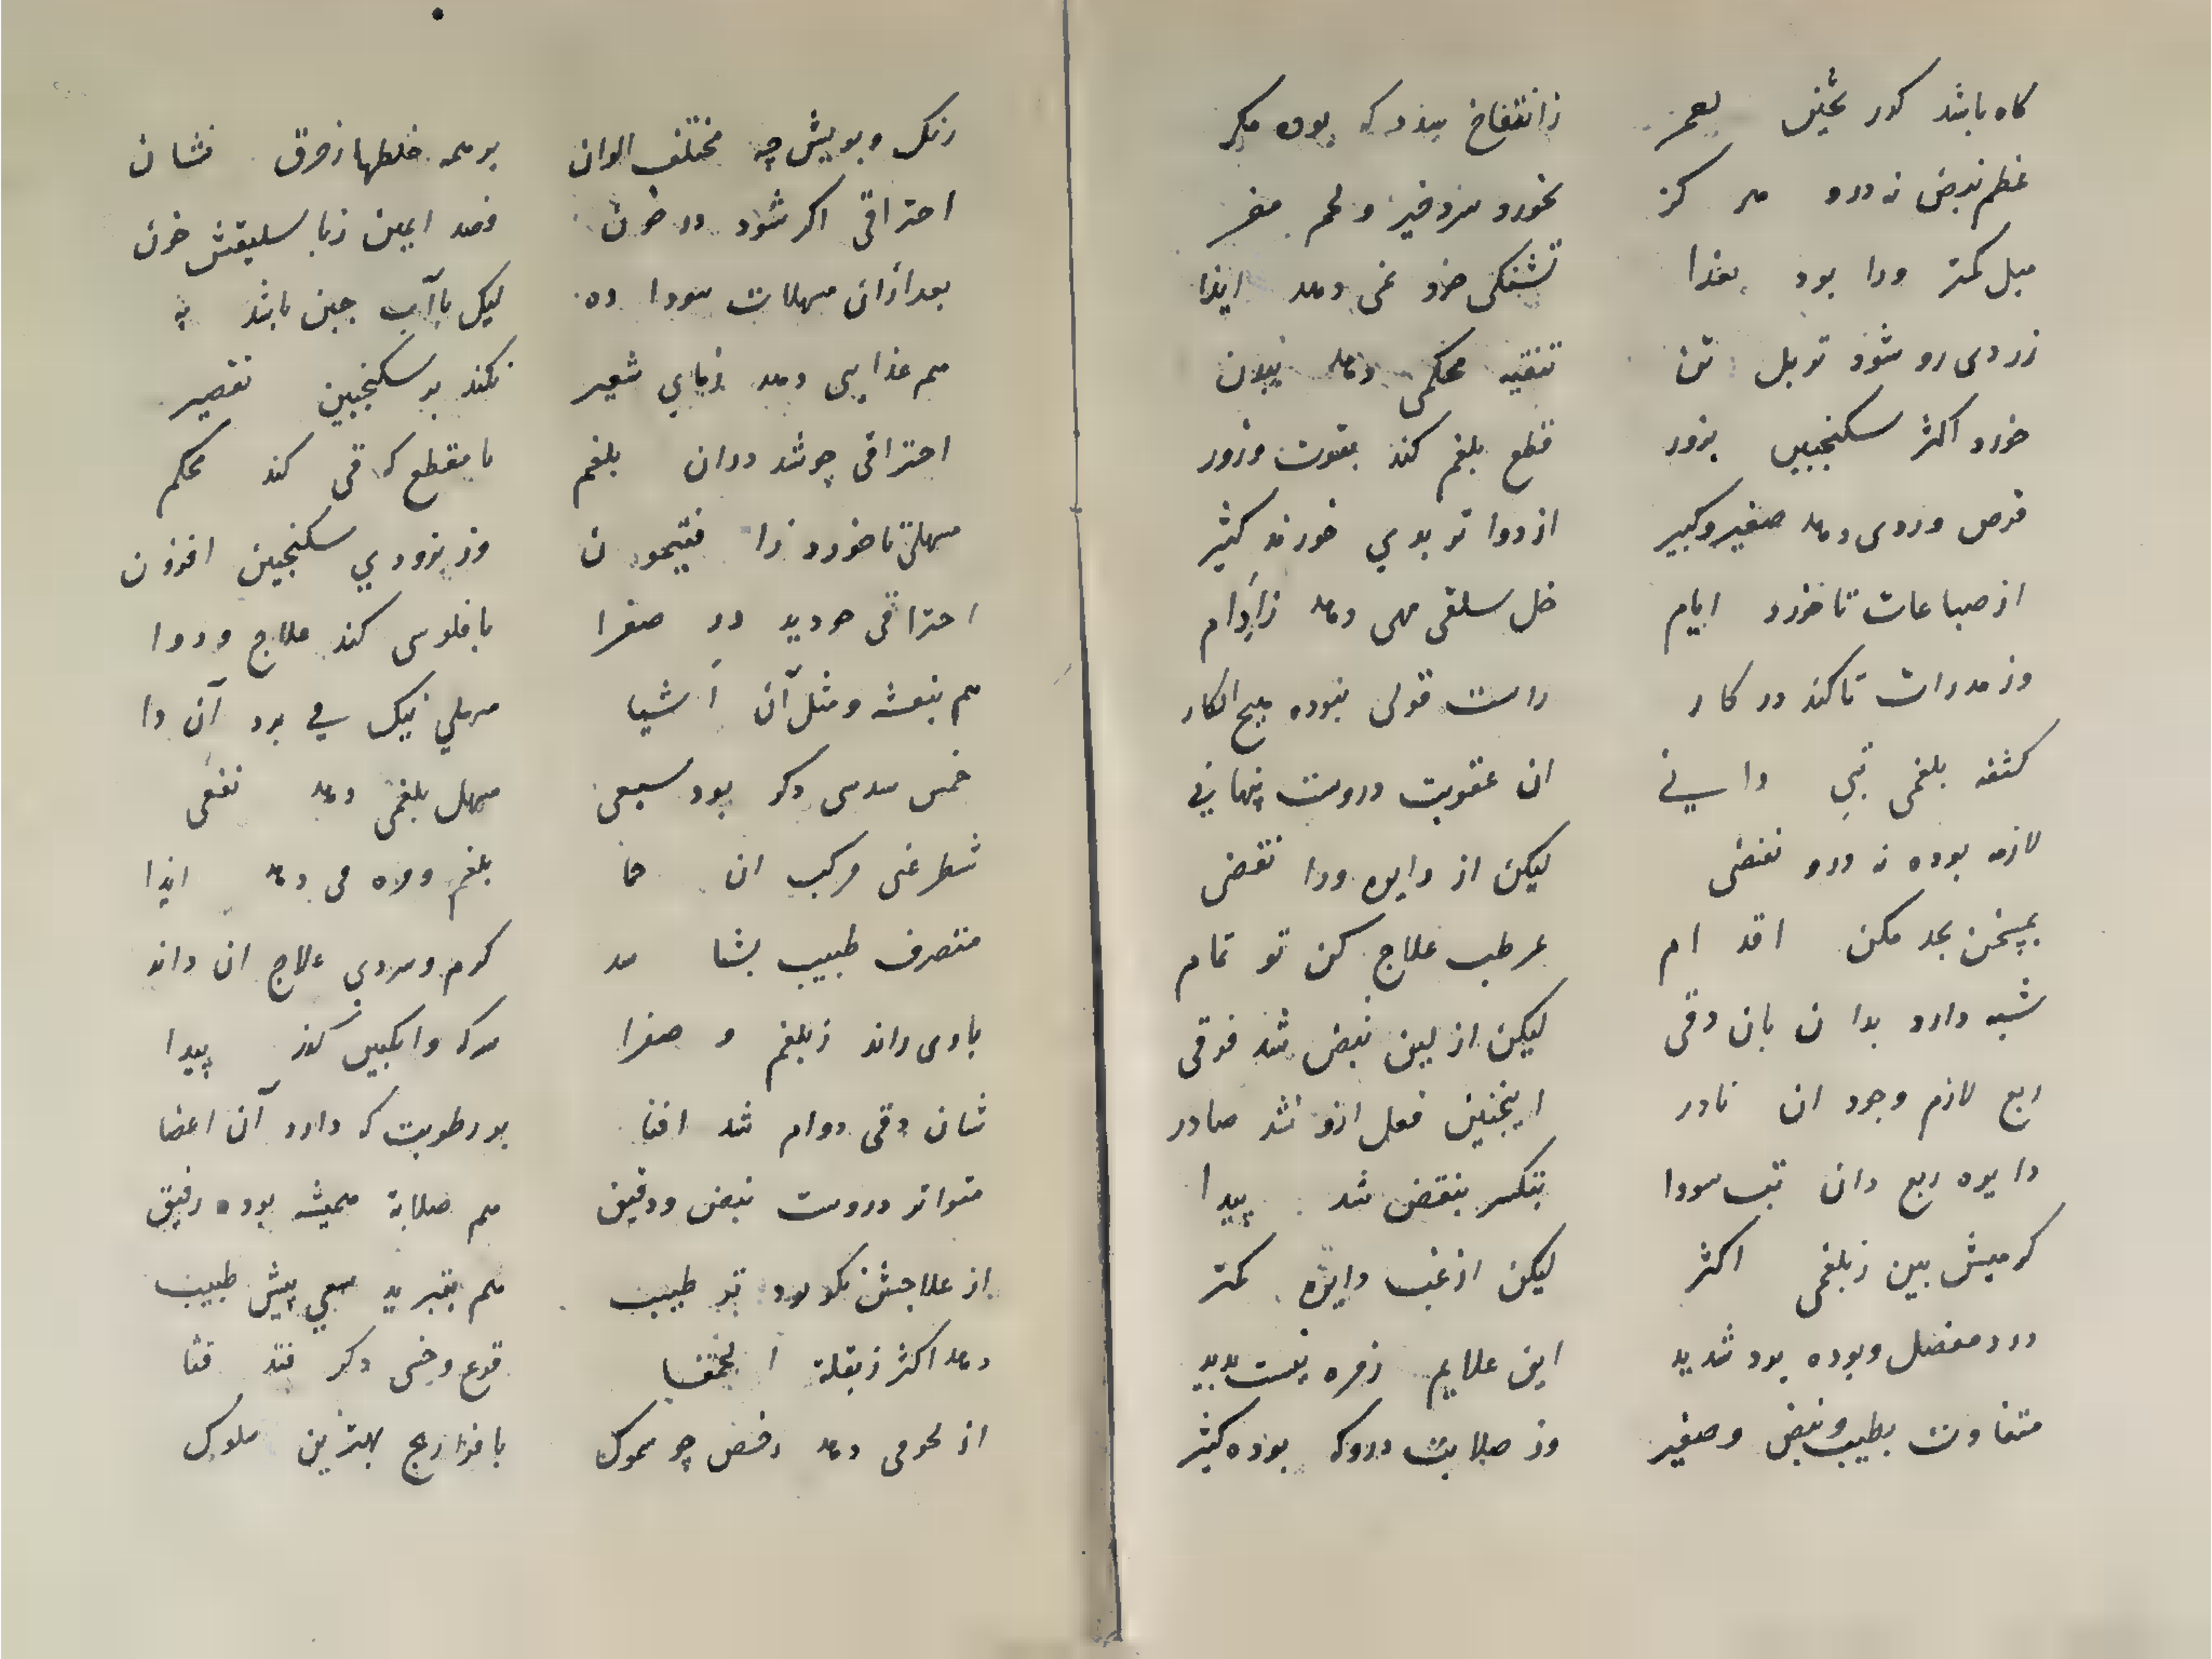 کاه باشد کدر ثخین بعمر زانتفاخ
عظم نبض نه درو هر کز بخورد و لحم
میل کمتر ورا بود بغذا تشنکی خرد نمی دهد ایذا
زردی رو شود توبل تن تنقیه محکمی دهد
خورد اکثر سکنجبین بزور قطع بلغم کند بقوت وزور
قرص وردی دهد صغیر وکبیر از دوا تربدی خورند کثیر
از صباعات تا خورد ایام خل سلقی همی دهد زادام
وز مدرات تا کند در کار راست قولی نبوده هیچ انکار
کثفه بلغمی تبی دانی ان عفونت دروست پنهانی
لازمه بوده نه درو نفضی لیکن از دایره ورا نقضی
بمپخن بحد مکن اقدام علاج کن تو تمام
شبه دارد بدان بان دقی لیکن از لین نبض شد فرقی
ربع لازم وجود ان نادر اینچنین فعل ازو شد صادر
دایره ربع دان تب سودا بتکسر بنقض شد پیدا
کرمیش بین زبلغمی اکثر لیکن از غب دایره کمتر
درد مفصل وبوده بود شدید این علایم
متفاوت بطیب ونبض وصغیر وز صلابت دروکه بوده کثیر
رنک وبویش چه مختلف الوان برهمه خلطها زفرق نشان
احتراقی اکر شود در خون فصد ایمن زباسلیقش خون
بعد ازان مسهلات سودا ده لیک با آب جبن باشد به
هم غذایی دهد زمای شعیر نکند بر سکنجبین تقصیر
احتراقی چو شد دران بلغم با مقطع که قی کند محکم
مسهلی تا خورد زا فتیمون وز بزودي سکنجبین افزون
احتراقی در صفرا با فلوسی کند علاج ودوا
هم بنفشه ومثل آن اشیا مسهلي نیک
خمس سدسی دکر بود سبعی مسهل بلغمی دهد نفعی
شطر غبی مرکب ان بلغم ومره می دهد ایذا
متصرف طبیب بشا سد کرم وسردي علاج ان داند
زبلغم و صفرا سرکه وانکبین کند پیدا
شان دقی دوام شد افنا بر رطوبت که دارد آن اعضا
متواتر دروست نبض ودقیق هم صلابة همیشه بوده رفیق
از علاجش نکو بود تر طیب هم بتبرید سعي پیش طبیب
دهد اکثر زبقلة الحمقا قرع وخسی دکر قثا
از لحومی دهد رخص چو سموک با فراریج بهترین ملوک